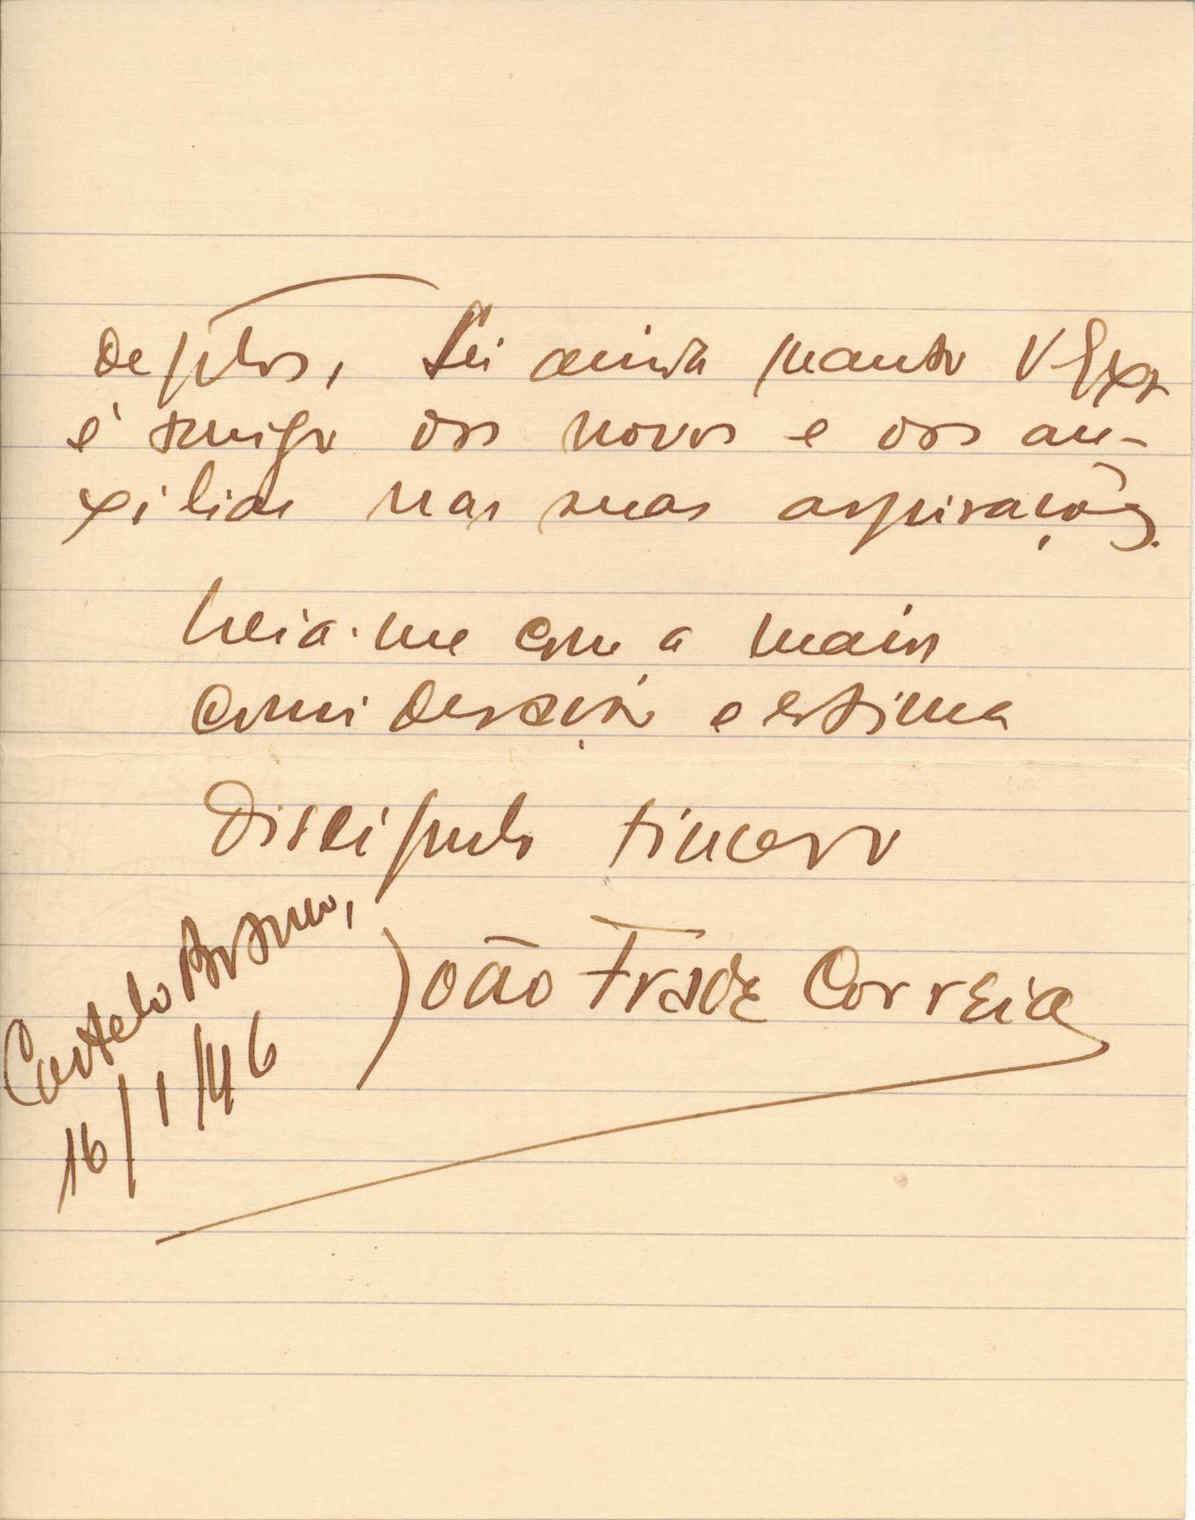 Sei ainda quanto V Exª
é amigo dos novos e dos au-
xilia nas suas aspirações.
Creia-me com a mais
consideração e estima
Discipulo sincero
João Frade Correia
Castelo Branco,
16/1/46